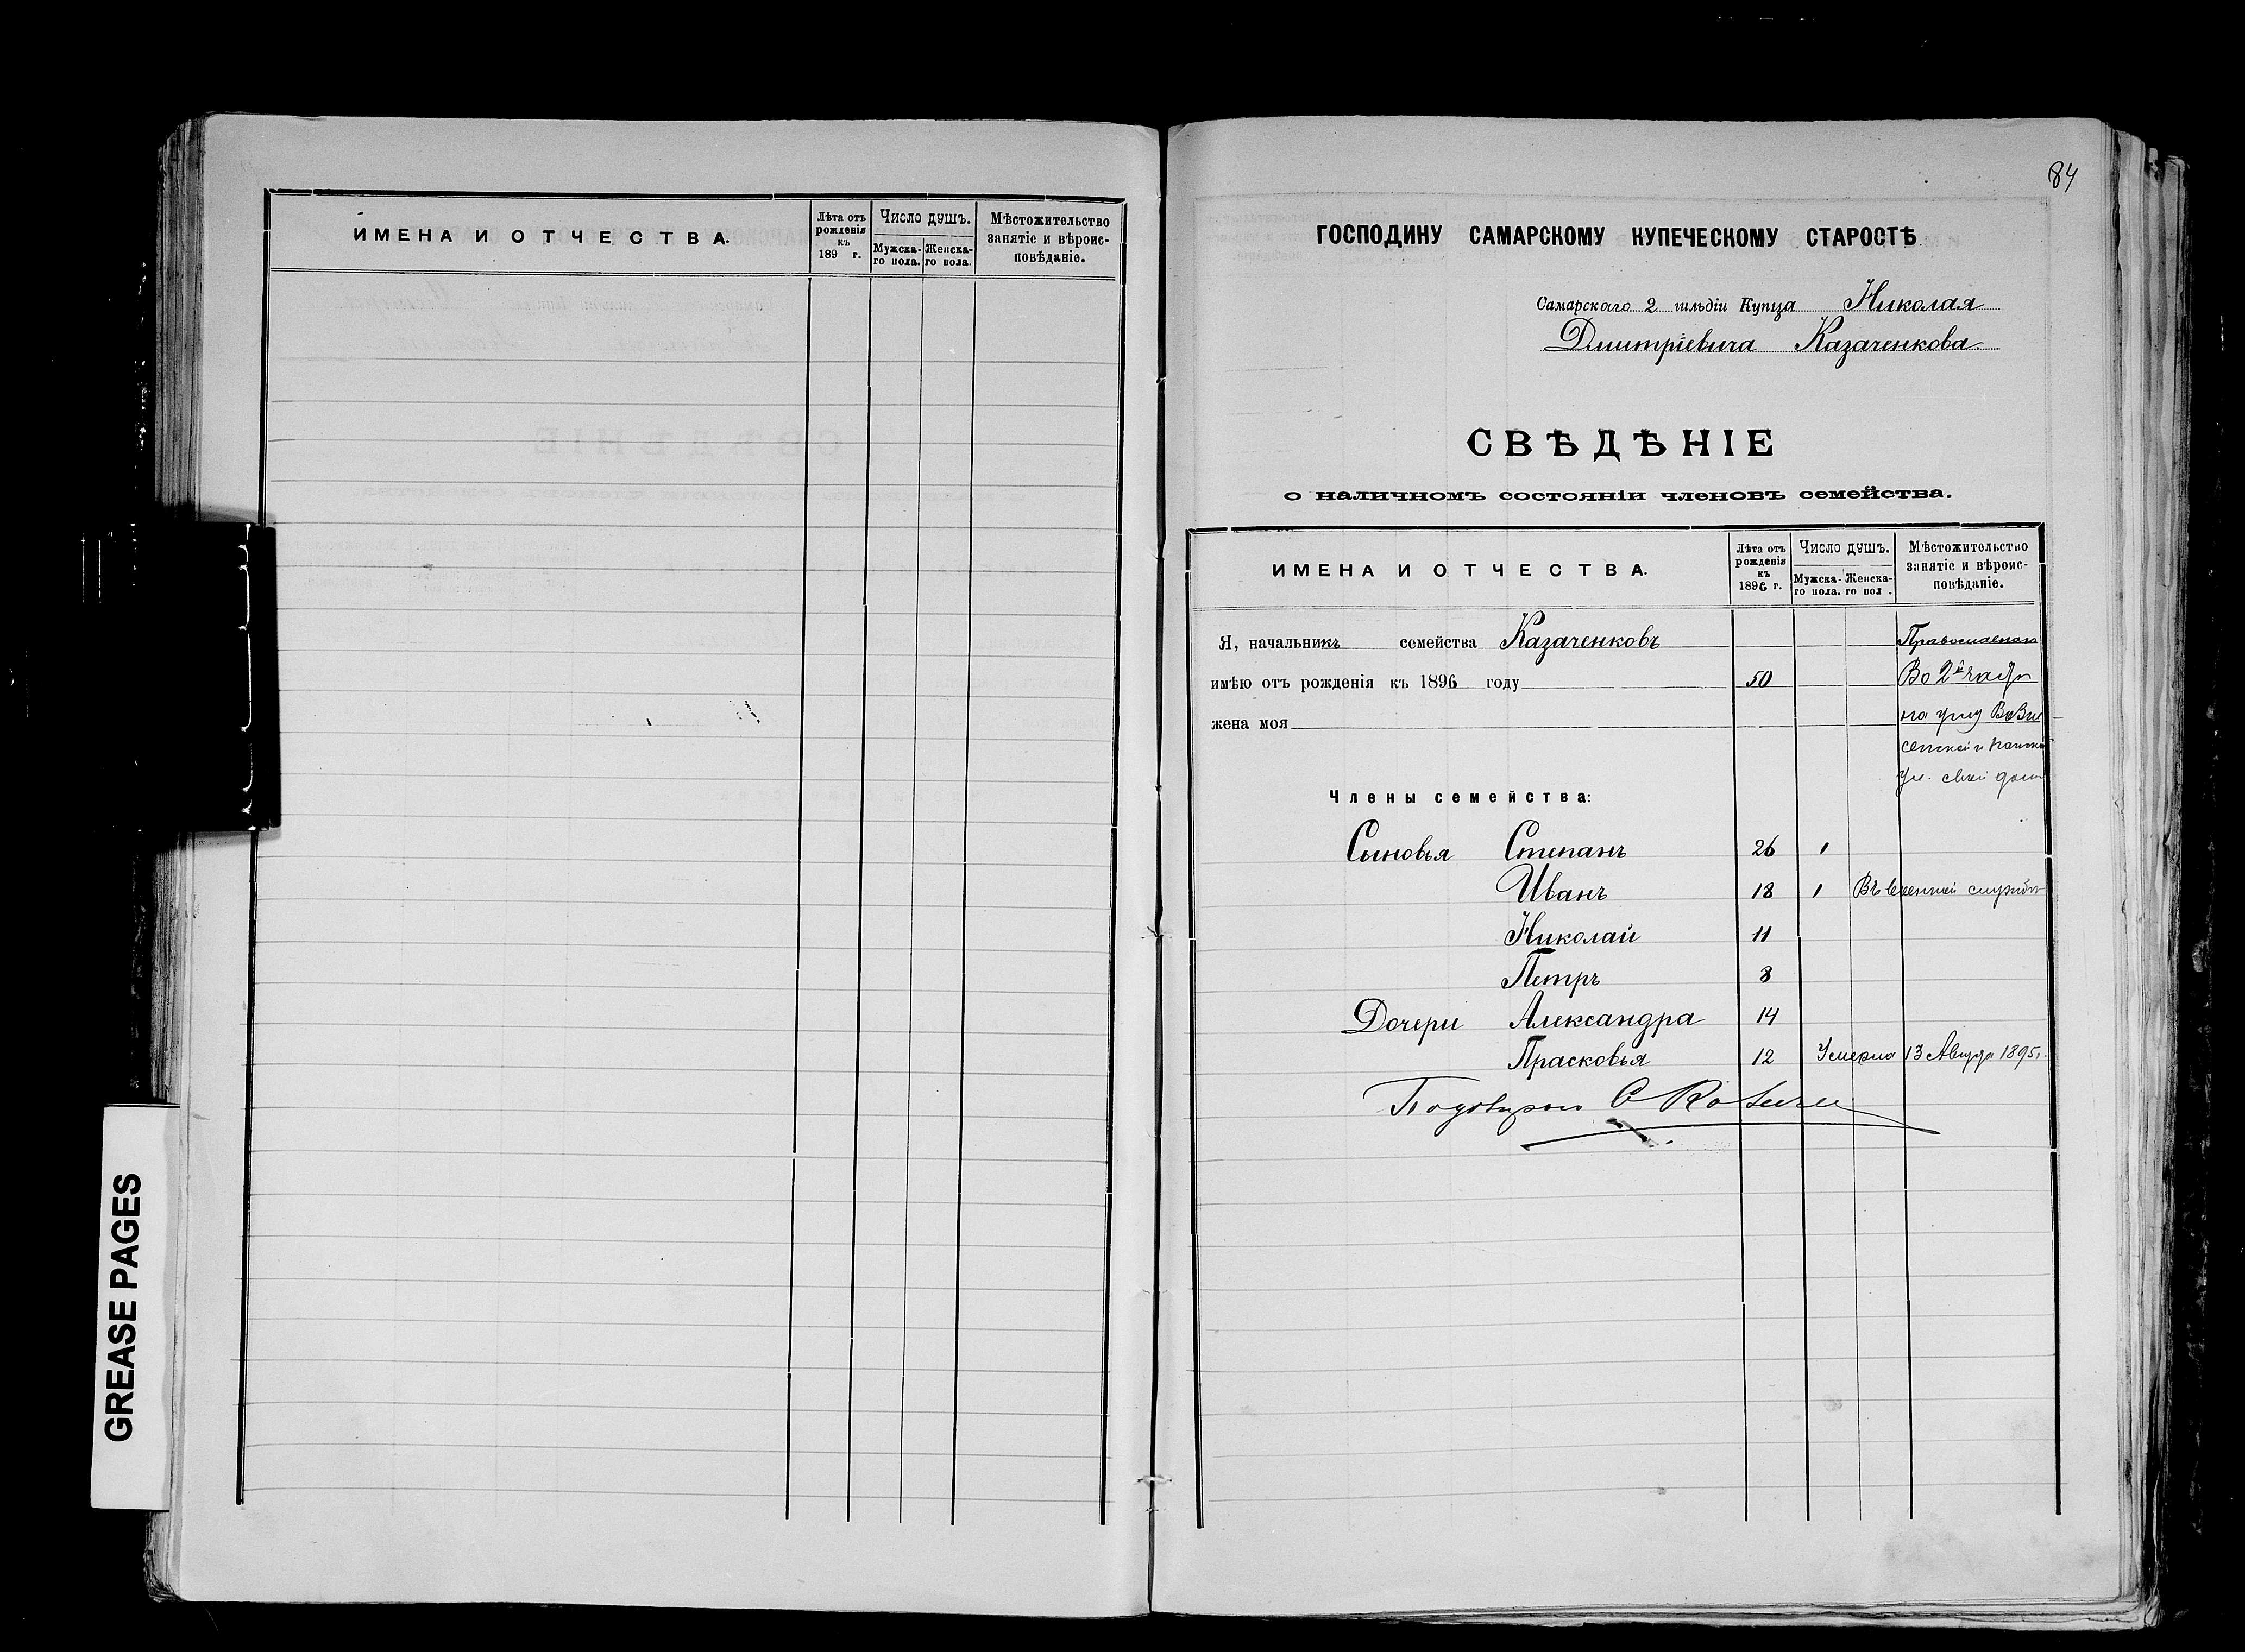 ИМЕНА И ОТЧЕСТВА.
Лѣта отъ рожденія къ 189 г.
Число душъ.
Мужска-го пола.
Женска-го пола.
Мѣстожительство занятіе и вѣроис-повѣданіе.
GREASE PAGES
84
ГОСПОДИНУ САМАРСКОМУ КУПЕЧЕСКОМУ СТАРОСТѢ
Самарскаго 2 гильдіи Купца Николая
Дмитріевича Казаченкова
СВѢДѢНІЕ
о наличномъ состояніи членовъ семейства.
ИМЕНА И ОТЧЕСТВА.
Лѣта отъ рожденія къ 1896 г.
Число душъ.
Мужска-го пола.
Женска-го пол .
Мѣстожительство занятіе и вѣроис-повѣданіе.
Я, начальникъ семейства Казаченковъ Православнаго
имѣю отъ рожденія къ 1896 году 50 Во 2й
жена моя на
ул. домъ
Члены семейства:
Сыновья Степанъ 26 1
Иванъ 18 1 Въ военной службѣ
Николай 11
Петръ 8
Дочери Александра 14
Прасковья 12 Умерла 13 Августа 1895 г.